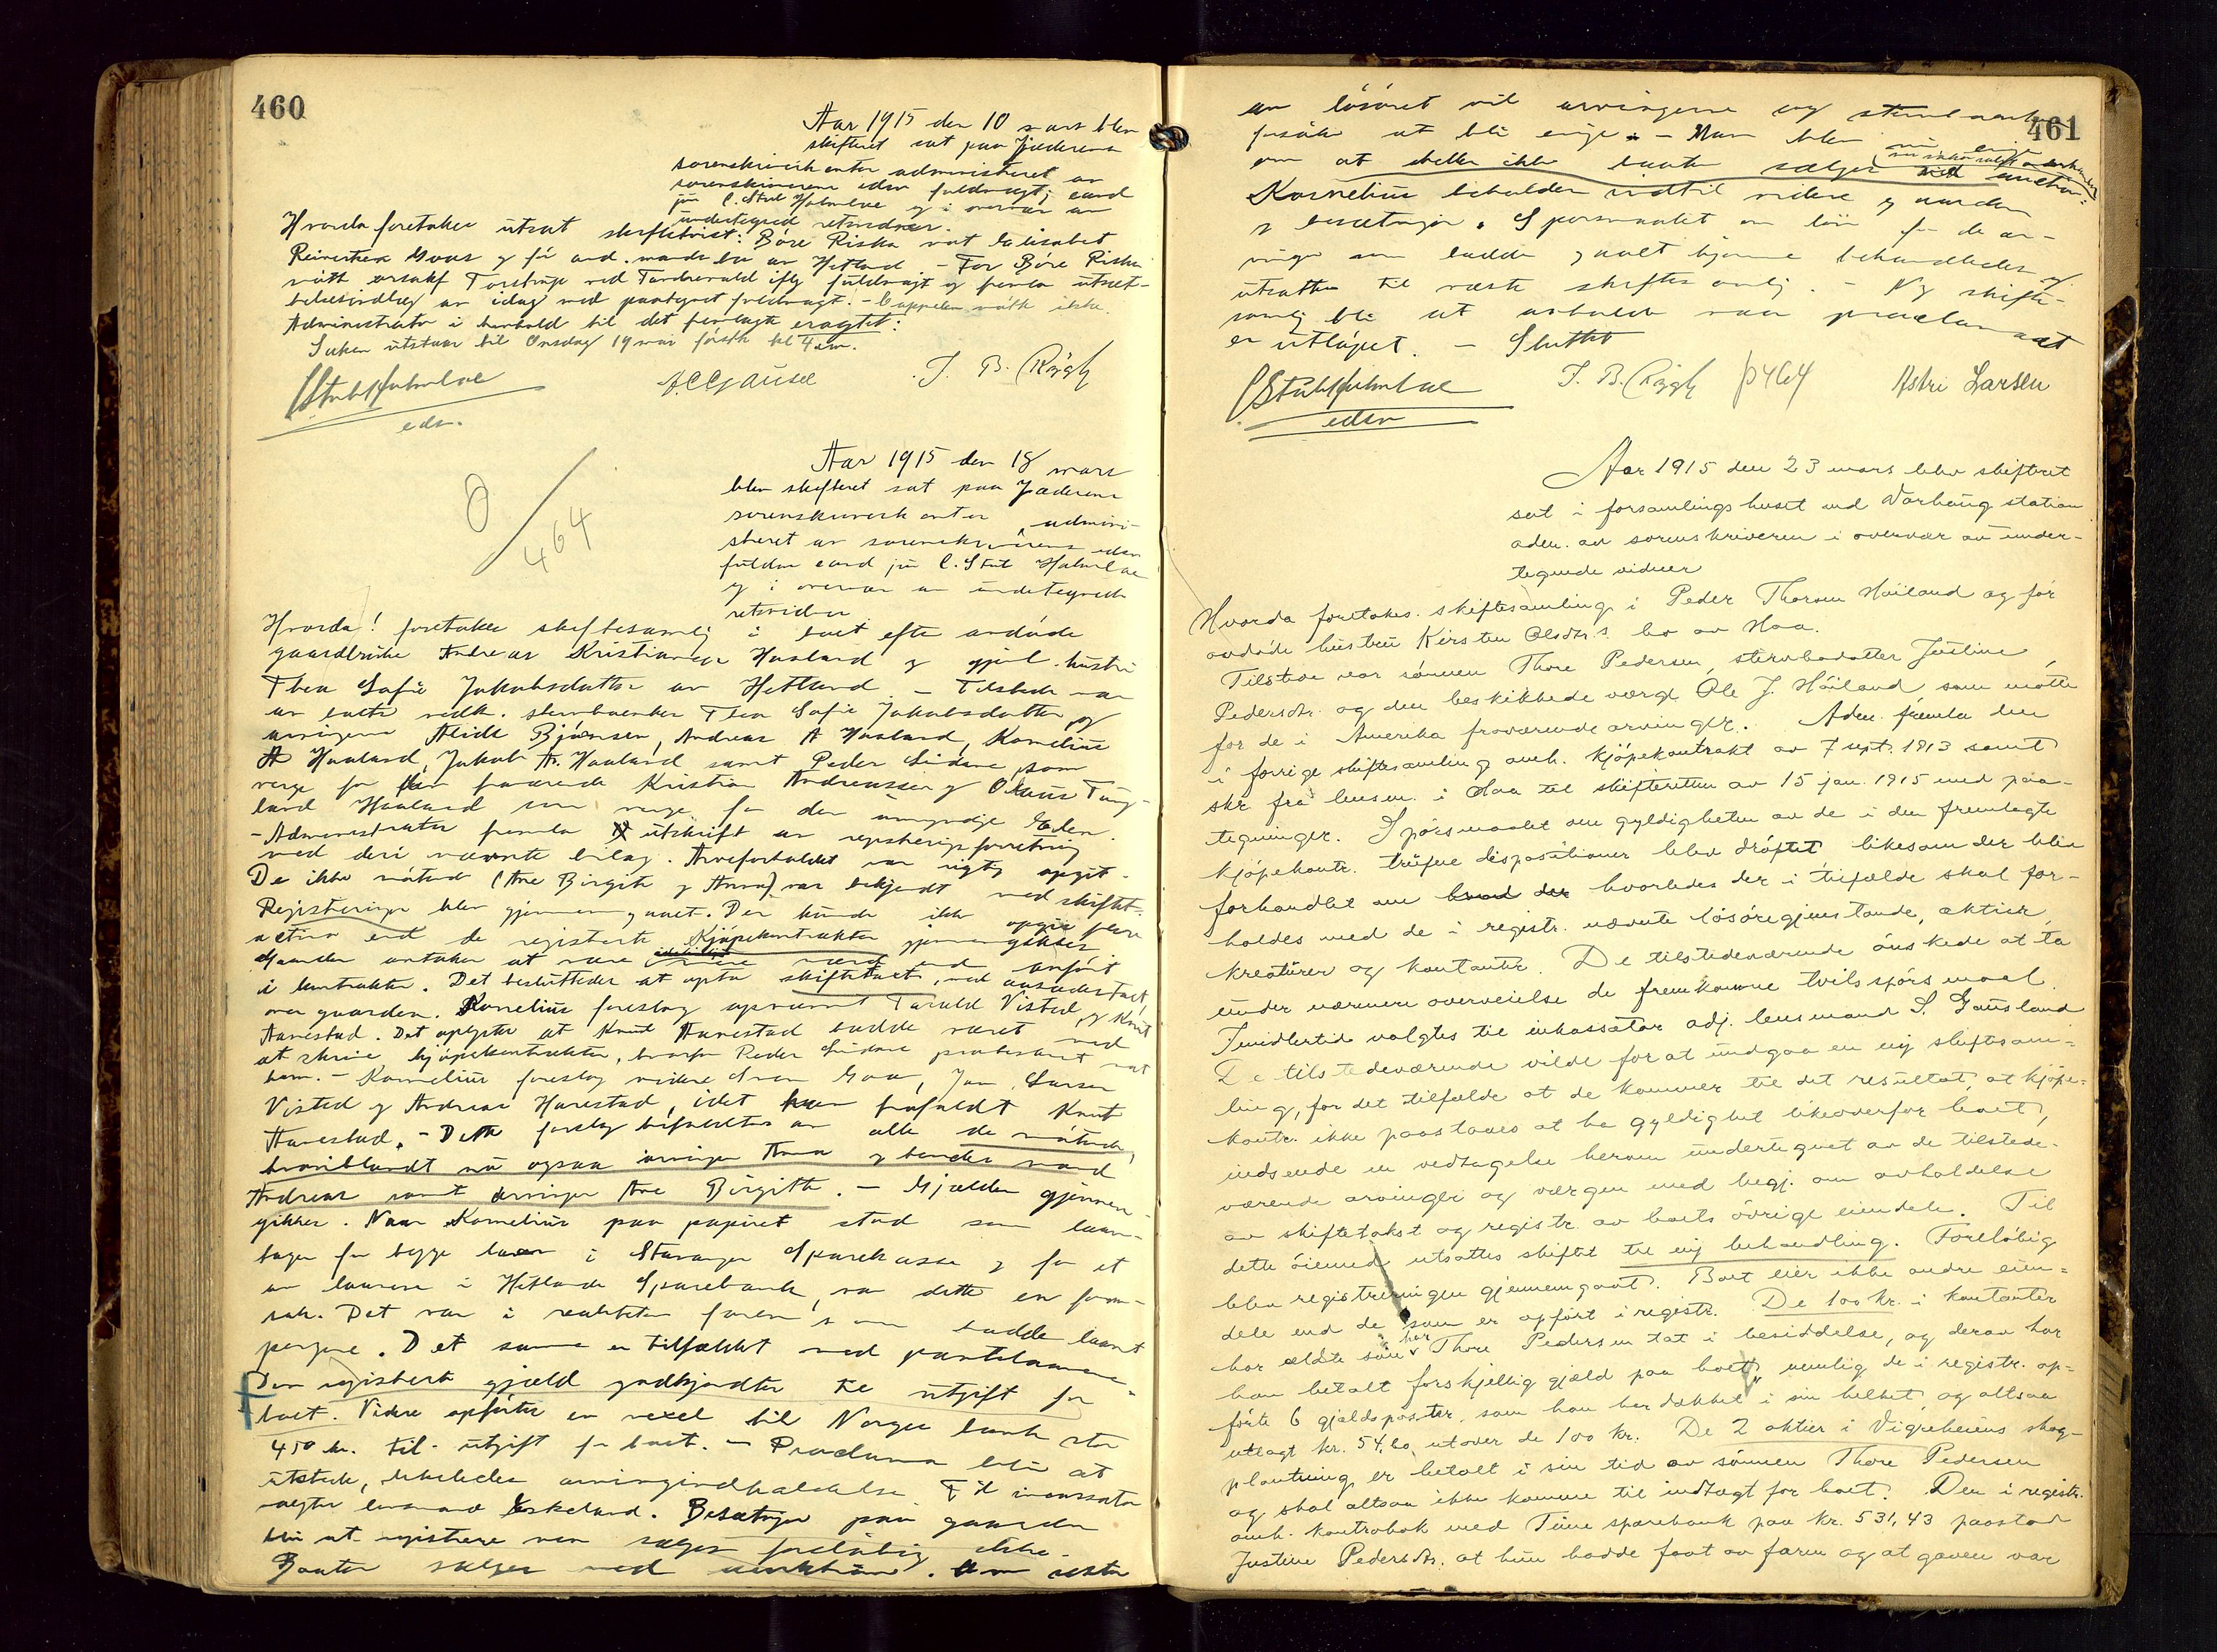 460
Aar 1915 den 10 mars blev
skifteret sat paa Jæderens
sorenskriverkontor administreret av
sorenskriverens edsv fuldmægtig cand
jur C. Stub Holmboe og i overvær av
undertegnede retsvidner.
Hvorda foretokes utsat skiftetvist: Böre Riska mot Elisabet
Reinertsen Goas og før avd. mands bo av Hetland - For Böre Riska
møtte ersakf Torstrup ved Tandrevald iflg fuldmagt og fremla utsæt-
telsesindlæg av idag med paategnet fuldmagt. - Cappelen møtte ikke.
Administrator i henhold til det fremlagte eragtet:
Saken utstaar til Onsdag 19 mai førstk kl 4 em.
C Stub Holmboe
edsv.
A. C. Gause
J. B. Rygh
0/464
Aar 1915 den 18 mars
blev skifteret sat paa Jæderens
sorenskriverkontor admini-
streret av sorenskriverens edsv
fuldm cand jur C. Stub Holmboe
og i overvær av undertegnede
retsvidner
Hvorda! foretokes skiftesamling i boet efter avdøde
gaardbruker Andreas Kristiansen Haaland og gjenl. hustru
Thea Sofie Jakobsdatter av Hetland. - Tilstede var
av boets vedk. stervboenken Thea Sofie Jakobsdatter og
arvingerne Alida Bjørnsen, Andreas A Haaland, Kornelius
A Haaland, Jakob A. Haaland samt Peder Lidane som
verge for den fraværende Kristian Andreassen og Olaus Tung-
land Haaland som verge for den umyndige Eden.
- Administrator fremla utskrift av registreringsforretning
med deri nævnte bilag. Arveforholdet var rigtig opgit.
De ikke møtende (Ane Birgite og Anna) var bekjendt med skiftet.
Registeringen blev gjennemgaaet. Der kunde ikke opgives flere
activa end de registrerte. Kjøpekontrakten gjennemgikkes
Gaarden antokes at være mere værd end anført
i kontrakten. Det besluttedes at opta skiftetakst, ved aasædestakt,
over gaarden. Kornelius foreslog opnævnt Tarald Visted og Knut
Harestad. Det oplystes at Knut Harestad hadde været med
at skrive kjøpekontrakten, hvorfor Peder Lidane protesterte mot
ham. - Kornelius foreslog videre Sven Goa, Jan Larsen
Visted og Andreas Harestad, idet han frafaldt Knut
Harestad. - Dette forslag bifaldtes av alle de møtende,
hvoriblandt nu ogsaa arvingen Anna og hendes mand
Andreas samt arvingen Ane Birgitte. - Gjælden gjennem-
gikkes. Naar Kornelius paa papiret stod som laan-
tager for begge laan i Stavanger Sparekasse og for et
av laanene i Hetlands Sparebank, var dette en form-
sak. Det var i realiteten faren som hadde laant
pengene. Det samme er tilfældet med pantelaanene.
Den registrerte gjæld godkjendtes til utgift for
boet. Videre opførtes en vexel til Norges bank stor
450 kr. til utgift for boet. - Proclama blir at
utstede, likeledes arvingindkaldelse. Til incassator
valgtes lensmand Eskeland. Besætningen paa gaarden
blir at registrere men sælges foreløbig ikke.
Baaten sælges ved auktion. Om resten
461
av løsøret vil arvingerne og stervboenken
forsøke at bli enige. - Man blev nu enige
om at heller ikke baaten sælges ved auction.
Kornelius beholder indtil videre gaarden
og besætningen. Spørsmaalet om løn for de ar-
vinger som hadde gaaet hjemme behandledes og
utsattes til næste skiftesamling. - Ny skifte-
samling blir at avholde naar proclamaet
er utløpet. - Sluttet
C Stub Holmboe
edsv
J. B. Rygh
p 464
Astri Larsen
Aar 1915 den 23 mars blev skifteret
sat i forsamlingshuset ved Varhaug station
adm. av sorenskriveren i overvær av under-
tegnede vidner
Hvorda foretokes skiftesamling i Peder Thorsen Høiland og før
avdøde hustru Kirsten Olsdtr's bo av Haa.
Tilstede var sønnen Thore Pedersen, stervbodatter Justine
Pedersdtr. og den beskikkede værge Ole J. Høiland som møtte
for de i Amerika fraværende arvinger. Adm. fremla den
i forrige skiftesamling omh. kjøpekontrakt av 7 sept. 1913 samt
skr fra lensm. i Haa til skifteretten av 15 jan. 1915 med paa-
tegninger. Spørsmaalet om gyldigheten av de i den fremlagte
kjøpekontr. trufne dispositioner blev drøftet likesom der blev
forhandlet om hvorledes der i tilfælde skal for-
holdes med de i registr. nævnte løsøregjenstande, aktier,
kreaturer og kontanter. De tilstedeværende ønskede at ta
under nærmere overveielse de fremkomne tvilsspørsmaal.
Imidlertid valgtes til inkassator adj. lensmand S. Gausland
De tilstedeværende vilde for at undgaa en ny skiftesam-
ling, for det tilfælde at de kommer til det resultat, at kjøpe-
kontr. ikke paastaaes at ha gyldighet likeoverfor boet,
indsende en vedtagelse herom undertegnet av de tilstede-
værende arvinger og værgen med begj. om avholdelse
av skiftetakst og registr. av boets øvrige eiendele. Til
dette øiemed utsattes skiftet til ny behandling. Foreløbig
blev registreringen gjennemgaat. Boet eier ikke andre eien-
dele end de som er opført i registr. De 100 kr. i kontanter
har ældste søn Thore Pedersen tat i besiddelse, og derav har
han betalt forskjellig gjæld paa boet, nemlig de i registr. op-
førte 6 gjeldsposter, som han har dækket i sin helhet, og altsaa
utlagt kr. 54,60 utover de 100 kr. De 2 aktier i Vigreheiens skog-
plantning er betalt i sin tid av sønnen Thore Pedersen
og skal altsaa ikke komme til indtægt for boet. Den i registr.
omh. kontrabok med Time sparebank paa kr. 531,43 paastod
Justine Pedersdtr. at hun hadde faat av faren og at gaven var